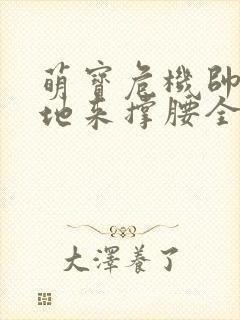 萌寶危機帥
地來撐腰全
大澤養了